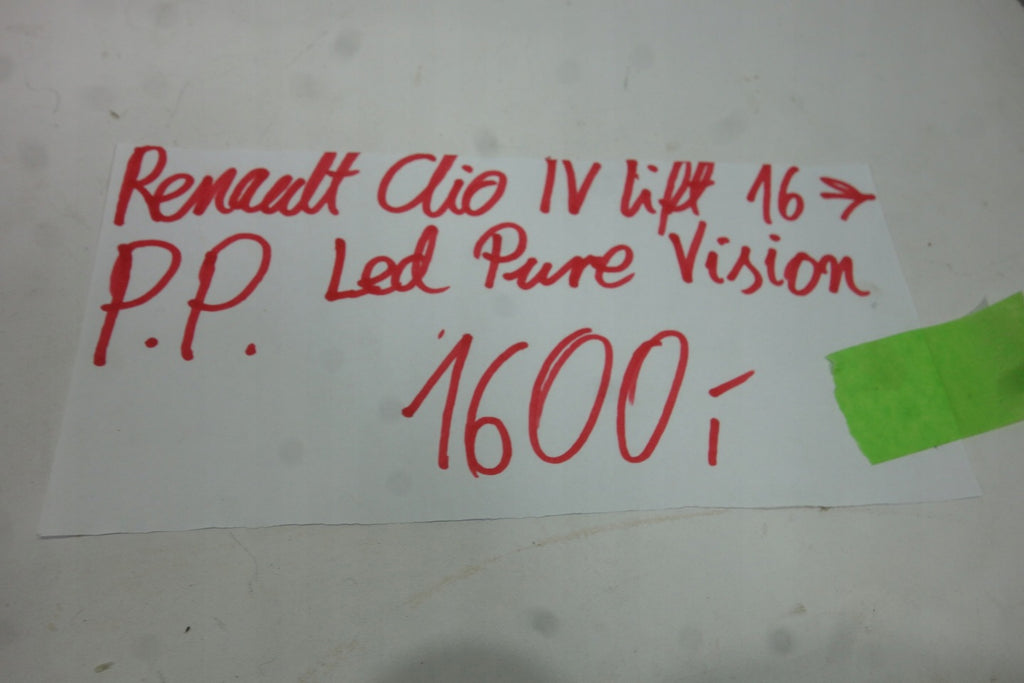 Renault Clio IV lift 16 →
P.P. Led Pure Vision
1600,-